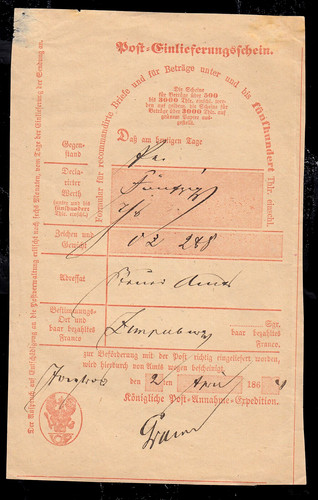 Post-Einlieferungsschein.
Formular für recommandirte Briefe und für Beträge unter und bis fünfhundert Thlr. einschl.
Die Scheine
für Beträge über 500
bis 3000 Thlr. einschl. werden
auf gelbem, die Scheine für
Beträge über 3000 Thlr. auf
grünem Papier ausgestellt.
Daß am heutigen Tage
Gegenstand
Declarirter
Werth
(unter und bis
fünfhundert
Thlr. einschl.)
Zeichen und
Gewicht
02 248
Adressat
Bestimmungs-
Ort und
baar bezahltes
Franco.
Sgr.
baar bezahltes
Franco.
zur Beförderung mit der Post richtig eingeliefert worden,
wird hierdurch von Amts wegen bescheinigt.
den 2 ten April 186
Königliche Post-Annahme-Expedition.
Der Anspruch auf Entschädigung an die Postverwaltung erlischt nach sechs Monaten, vom Tage der Einlieferung der Sendung an.